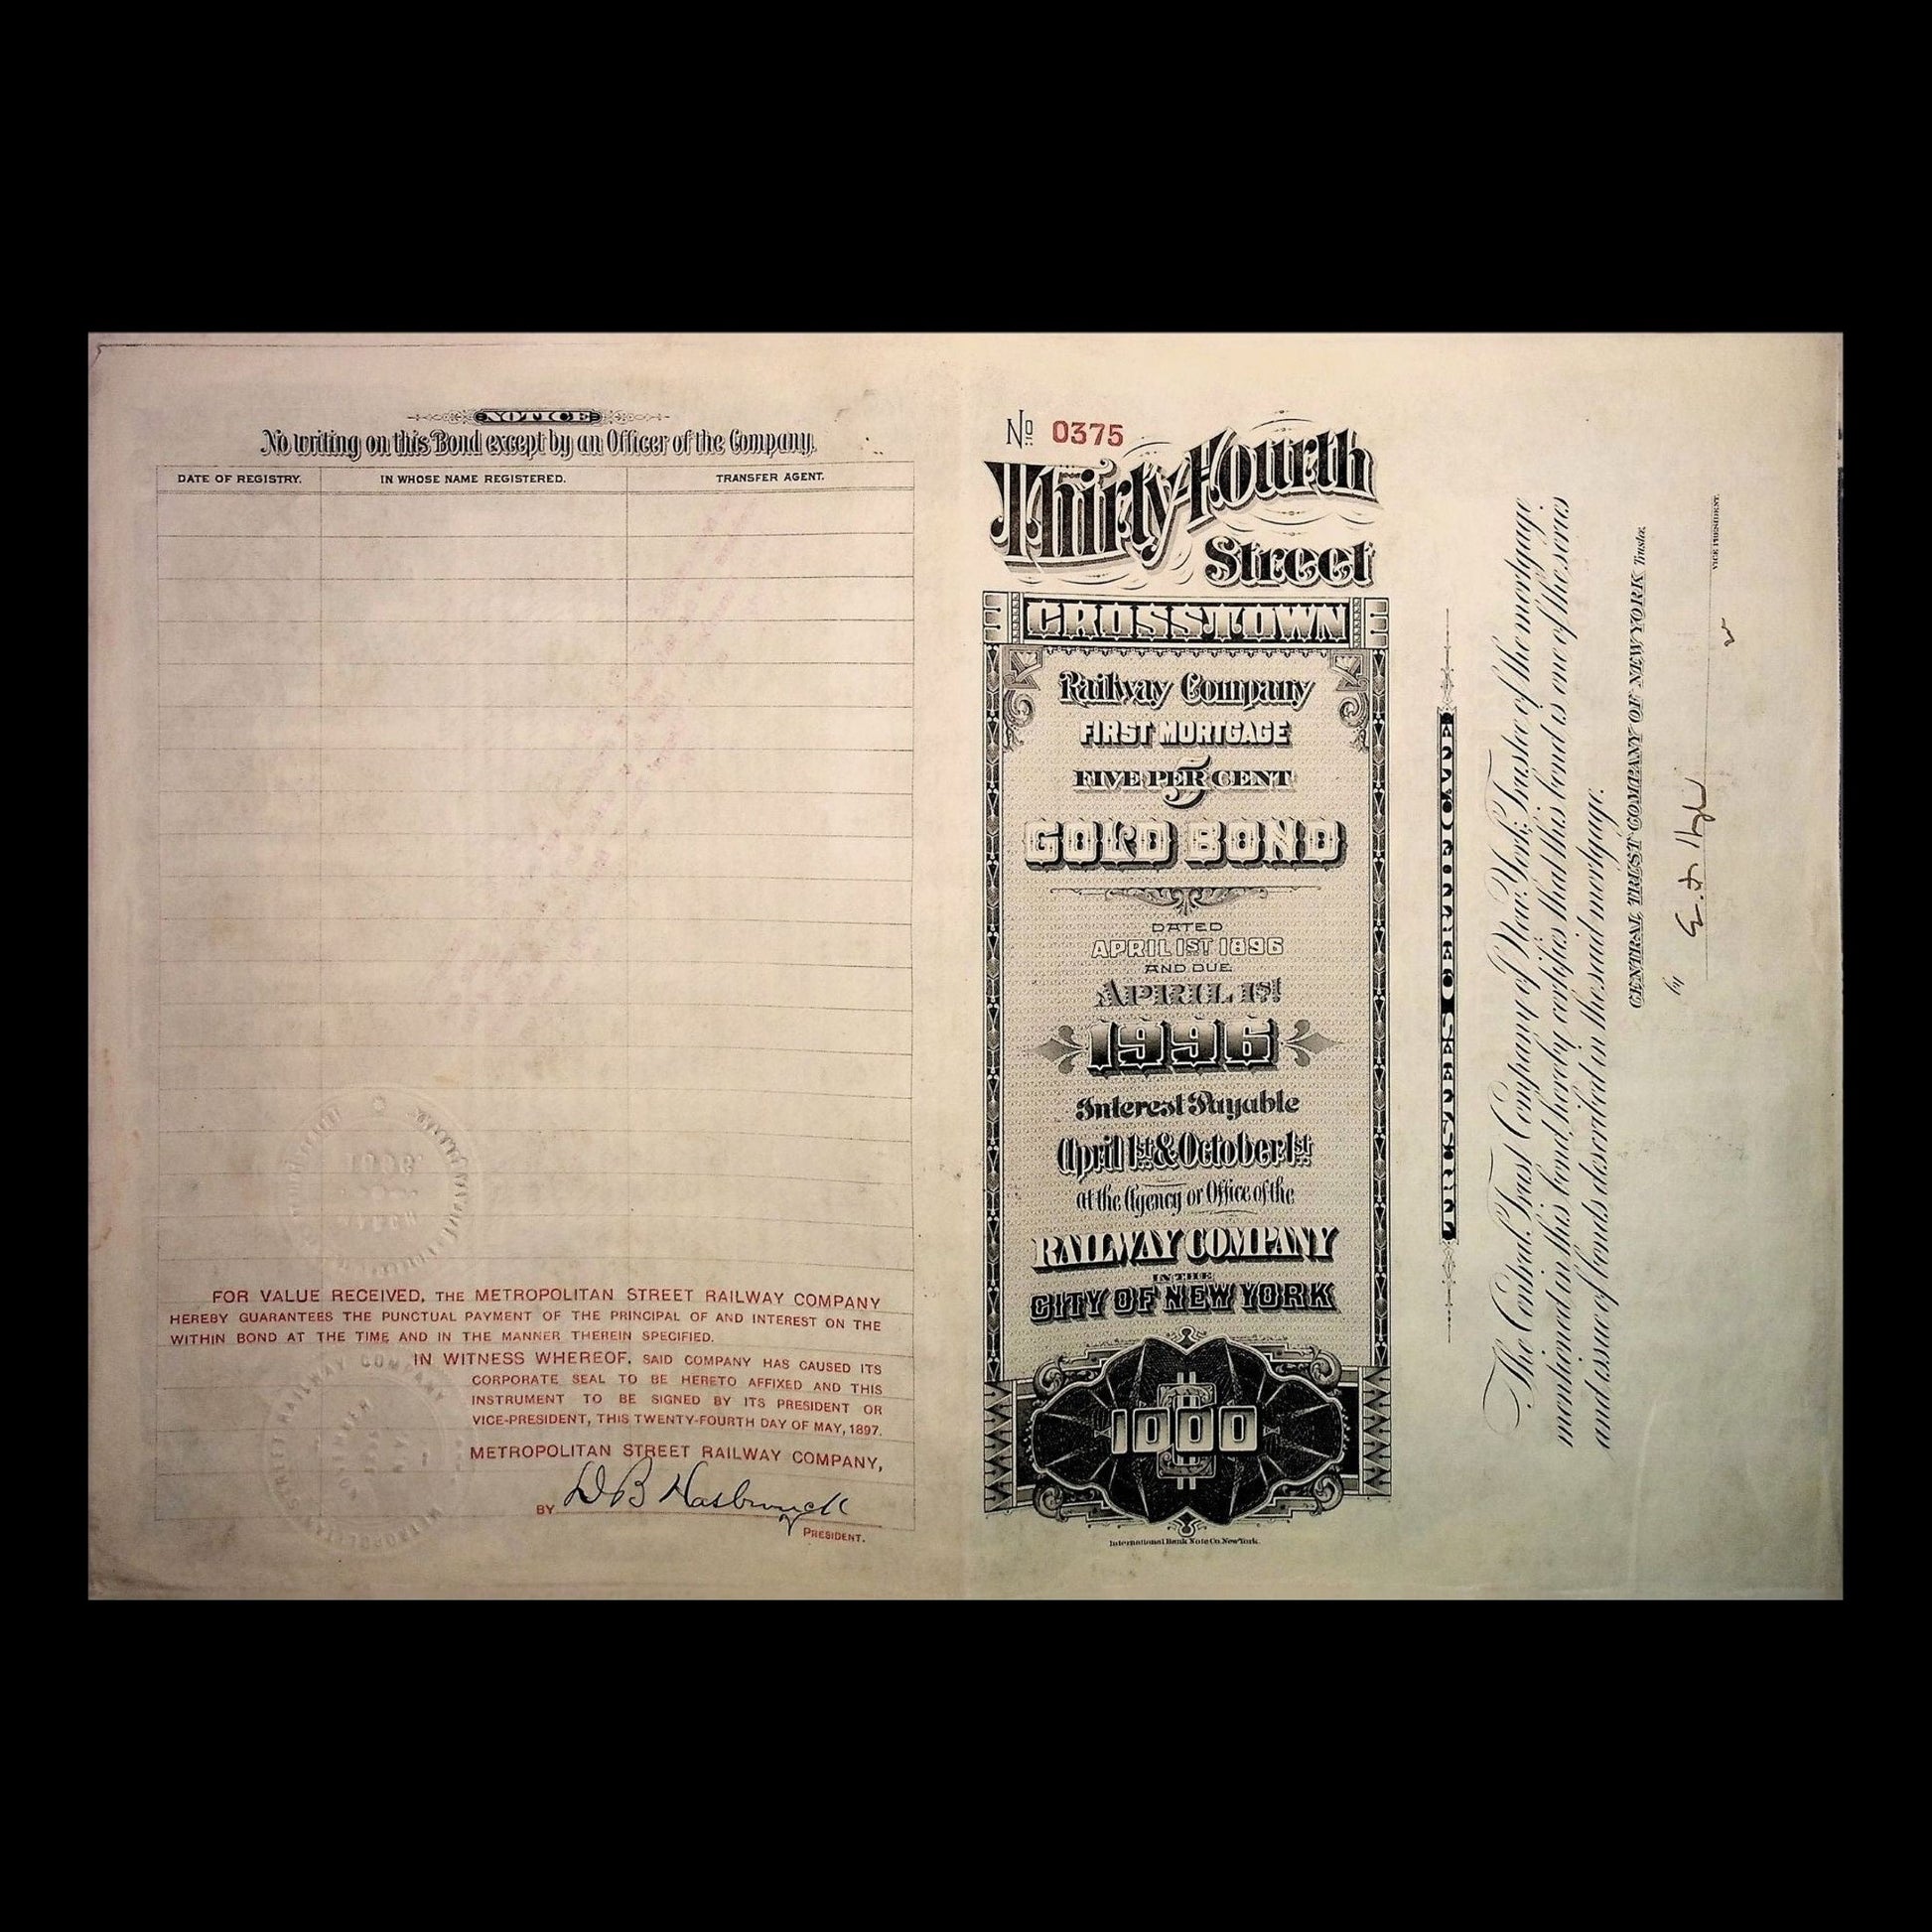 NOTICE
No writing on this Bond except by an Officer of the Company.
DATE OF REGISTRY. IN WHOSE NAME REGISTERED. TRANSFER AGENT.
FOR VALUE RECEIVED, THE METROPOLITAN STREET RAILWAY COMPANY
HEREBY GUARANTEES THE PUNCTUAL PAYMENT OF THE PRINCIPAL OF AND INTEREST ON THE
WITHIN BOND AT THE TIME AND IN THE MANNER THEREIN SPECIFIED.
IN WITNESS WHEREOF, SAID COMPANY HAS CAUSED ITS
CORPORATE SEAL TO BE HERETO AFFIXED AND THIS
INSTRUMENT TO BE SIGNED BY ITS PRESIDENT OR
VICE-PRESIDENT, THIS TWENTY-FOURTH DAY OF MAY, 1897.
METROPOLITAN STREET RAILWAY COMPANY,
BY D B Hasbrouck
PRESIDENT.
METROPOLITAN STREET RAILWAY COMPANY
NOVEMBER
N.Y.
No 0375
Thirty-Fourth
Street
CROSSTOWN
Railway Company
FIRST MORTGAGE
FIVE PER CENT
5
GOLD BOND
DATED
APRIL 1ST 1896
AND DUE
APRIL 1st
1996
Interest Payable
April 1st & October 1st
at the Agency or Office of the
RAILWAY COMPANY
IN THE
CITY OF NEW YORK
$1000
International Bank Note Co. New York.
TRUSTEE'S CERTIFICATE
The Central Trust Company of New York, Trustee of the mortgage
mentioned in this bond, hereby certifies that this bond is one of the series
and issue of bonds described in the said mortgage.
CENTRAL TRUST COMPANY OF NEW YORK Trustee.
by
VICE PRESIDENT.